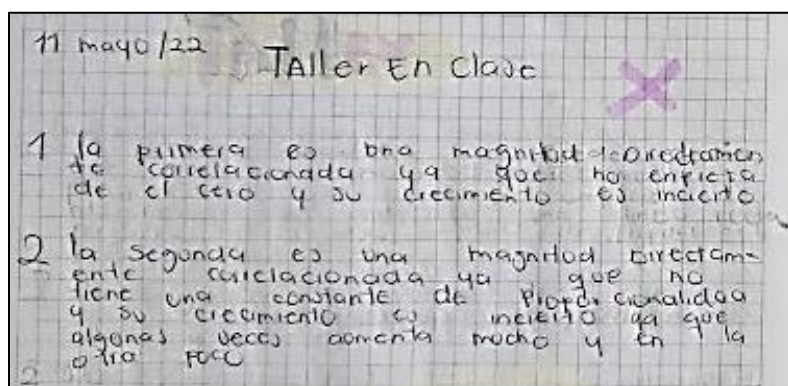 11 mayo/22
Taller En Clase
1 la primera es una magnitud directamen
te correlacionada ya que no enpieza
de el cero y su crecimiento es incierto
2 la segunda es una magnitud Directam-
ente correlacionada ya que no
tiene una constante de Proporcionalidad
y su crecimiento es incierto ya que
algunas veces aomenta mocho y en la
otra Poco